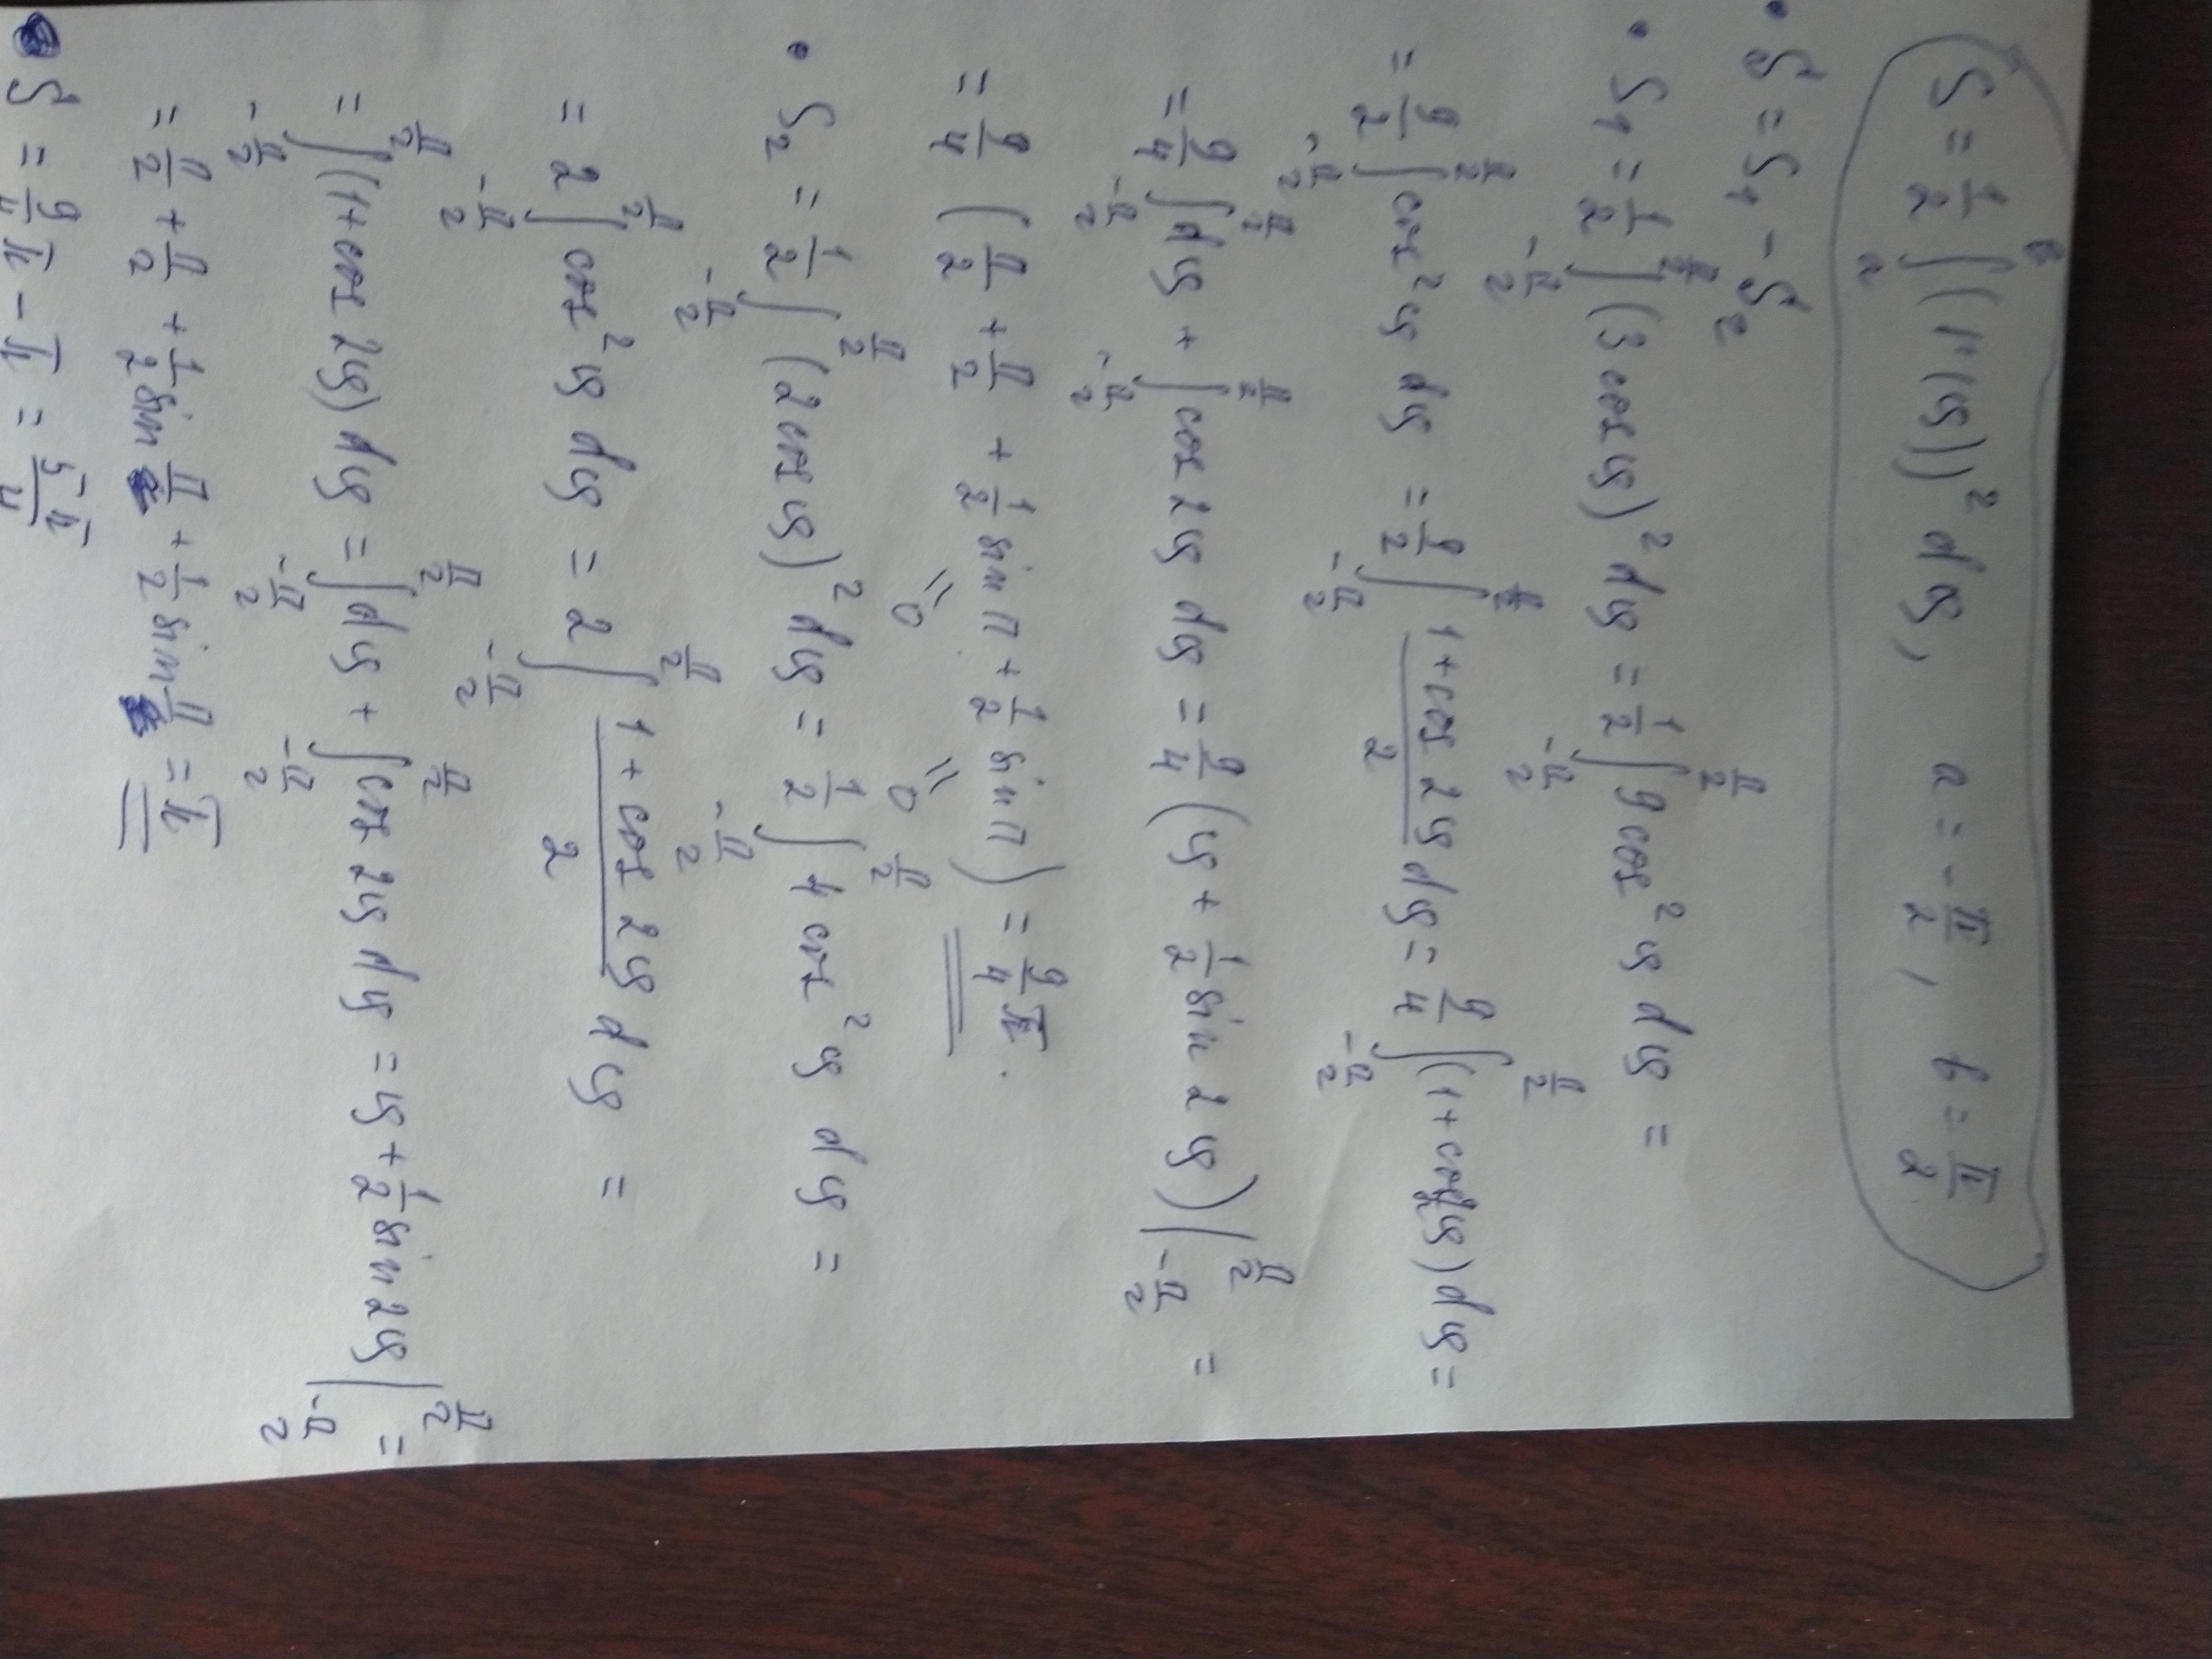 S = 1/2 ∫_a^b (r(φ))² dφ, a = -π/2, b = π/2
• S = S₁ - S₂
• S₁ = 1/2 ∫_{-π/2}^{π/2} (3 cos φ)² dφ = 1/2 ∫_{-π/2}^{π/2} 9 cos² φ dφ =
= 9/2 ∫_{-π/2}^{π/2} cos² φ dφ = 9/2 ∫_{-π/2}^{π/2} (1 + cos 2φ)/2 dφ = 9/4 ∫_{-π/2}^{π/2} (1 + cos 2φ) dφ =
= 9/4 ∫_{-π/2}^{π/2} dφ + ∫_{-π/2}^{π/2} cos 2φ dφ = 9/4 (φ + 1/2 sin 2φ) |_{-π/2}^{π/2} =
= 9/4 (π/2 + π/2 + 1/2 sin π + 1/2 sin π) = 9/4 π.
= 0 = 0
• S₂ = 1/2 ∫_{-π/2}^{π/2} (2 cos φ)² dφ = 1/2 ∫_{-π/2}^{π/2} 4 cos² φ dφ =
= 2 ∫_{-π/2}^{π/2} cos² φ dφ = 2 ∫_{-π/2}^{π/2} (1 + cos 2φ)/2 dφ =
= ∫_{-π/2}^{π/2} (1 + cos 2φ) dφ = ∫_{-π/2}^{π/2} dφ + ∫_{-π/2}^{π/2} cos 2φ dφ = φ + 1/2 sin 2φ |_{-π/2}^{π/2} =
= π/2 + π/2 + 1/2 sin π + 1/2 sin π = π
• S = 9/4 π - π = 5π/4